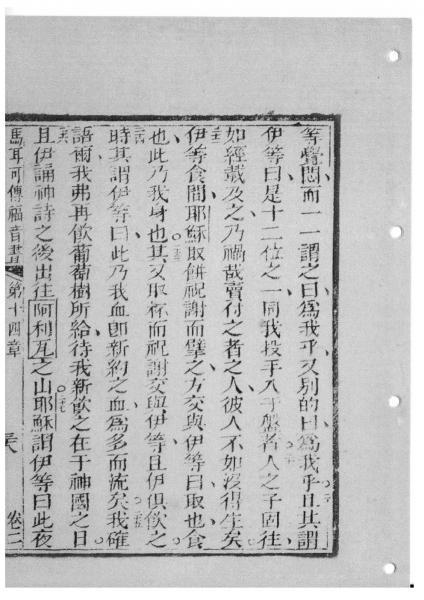 等覺悶而一一謂之曰為我乎又別的曰為我乎且其謂
伊等曰是十二位之一同我投手入于盤者人之子固往
如經載及之乃禍哉賣付之者之人彼人不如沒得生矣
伊等食間耶穌取餅祝謝而擘之方交與伊等曰取也食
也此乃我身也其又取杯而祝謝交與伊等且伊俱飲之
時其謂伊等曰此乃我血即新約之血為多而流矣我確
語爾我弗再飲葡萄樹所給待我新飲之在于神國之日
且伊誦神詩之後出往阿利瓦之山耶穌謂伊等曰此夜
馬耳可傳福音書 第十四章 卷二